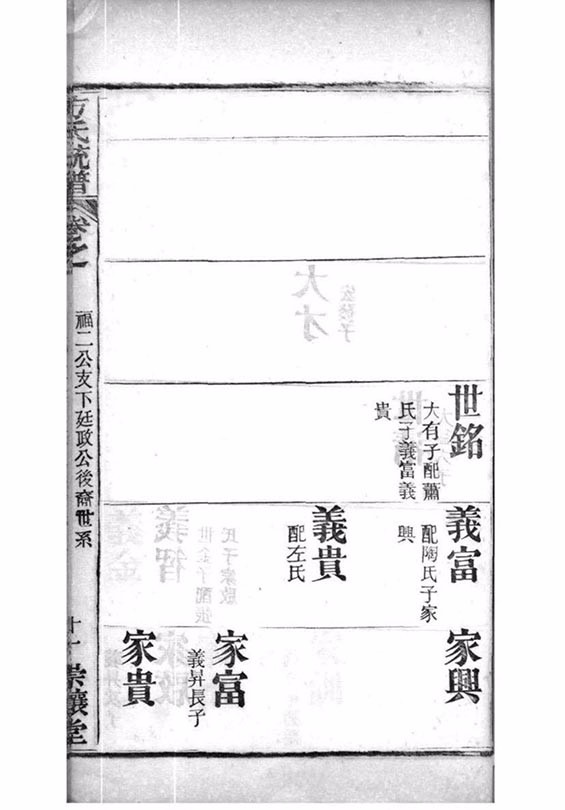 世銘
大有子配蕭
氏子義富義
貴
義富
配陶氏子家
興
義貴
配左氏
家興
家富
義昇長子
家貴
方氏統譜
卷之
福二公支下廷政公後裔世系
十一
崇讓堂